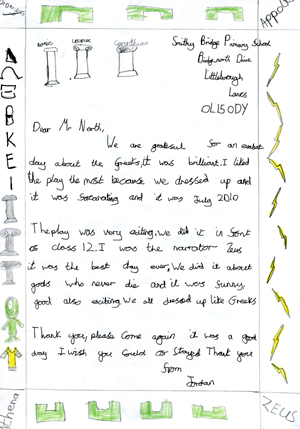 Appollo
Doric Ionic Corinthian
Smithy Bridge Primary School
Bridgenorth Drive
Littleborough
Lancs
OL15 0DY
Dear Mr North,
We are grateful for an excellent
day about the Greeks, It was brilliant. I liked
the play the most because we dressed up and
it was and it was July 2010
The play was very exiting, we did it in front
of class 12, I was the narrator Zeus
it was the best day ever, We did it about
gods who never die and it was funny,
good also exiting, We all dressed up like Greeks
Thank you, please come again it was a good
day I wish you could of stayed Thank you
from
Jordan
Athena
ZEUS